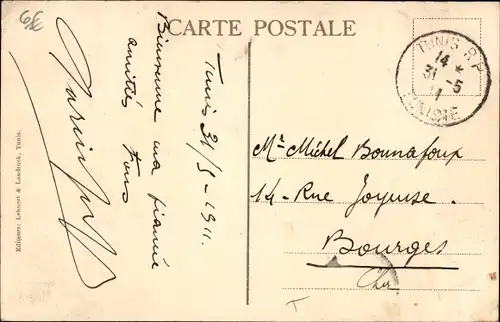 CARTE POSTALE
TUNIS R.P
14 *
31 -5
11
TUNISIE
Tunis 31/5-1911.
Bienvenue ma fiancée
amitiés
Tous
Mr. Michel Bonnafoux
14-Rue Joyeuse.
Bourges
Cher
T
Editeurs: Lehnert & Landrock, Tunis.